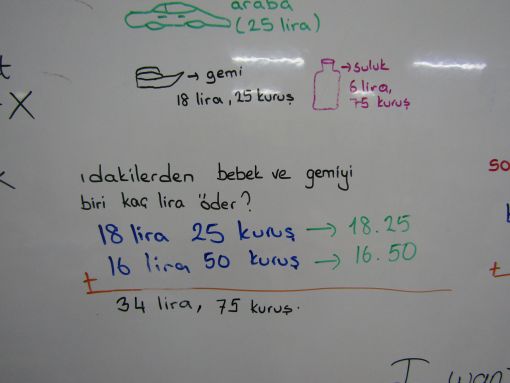 araba
(25 lira)
→ gemi
18 lira, 25 kuruş
→ suluk
6 lira,
75 kuruş
ıdakilerden bebek ve gemiyi
biri kaç lira öder?
18 lira 25 kuruş → 18.25
16 lira 50 kuruş → 16.50
+
34 lira, 75 kuruş.
X
so
+
I want